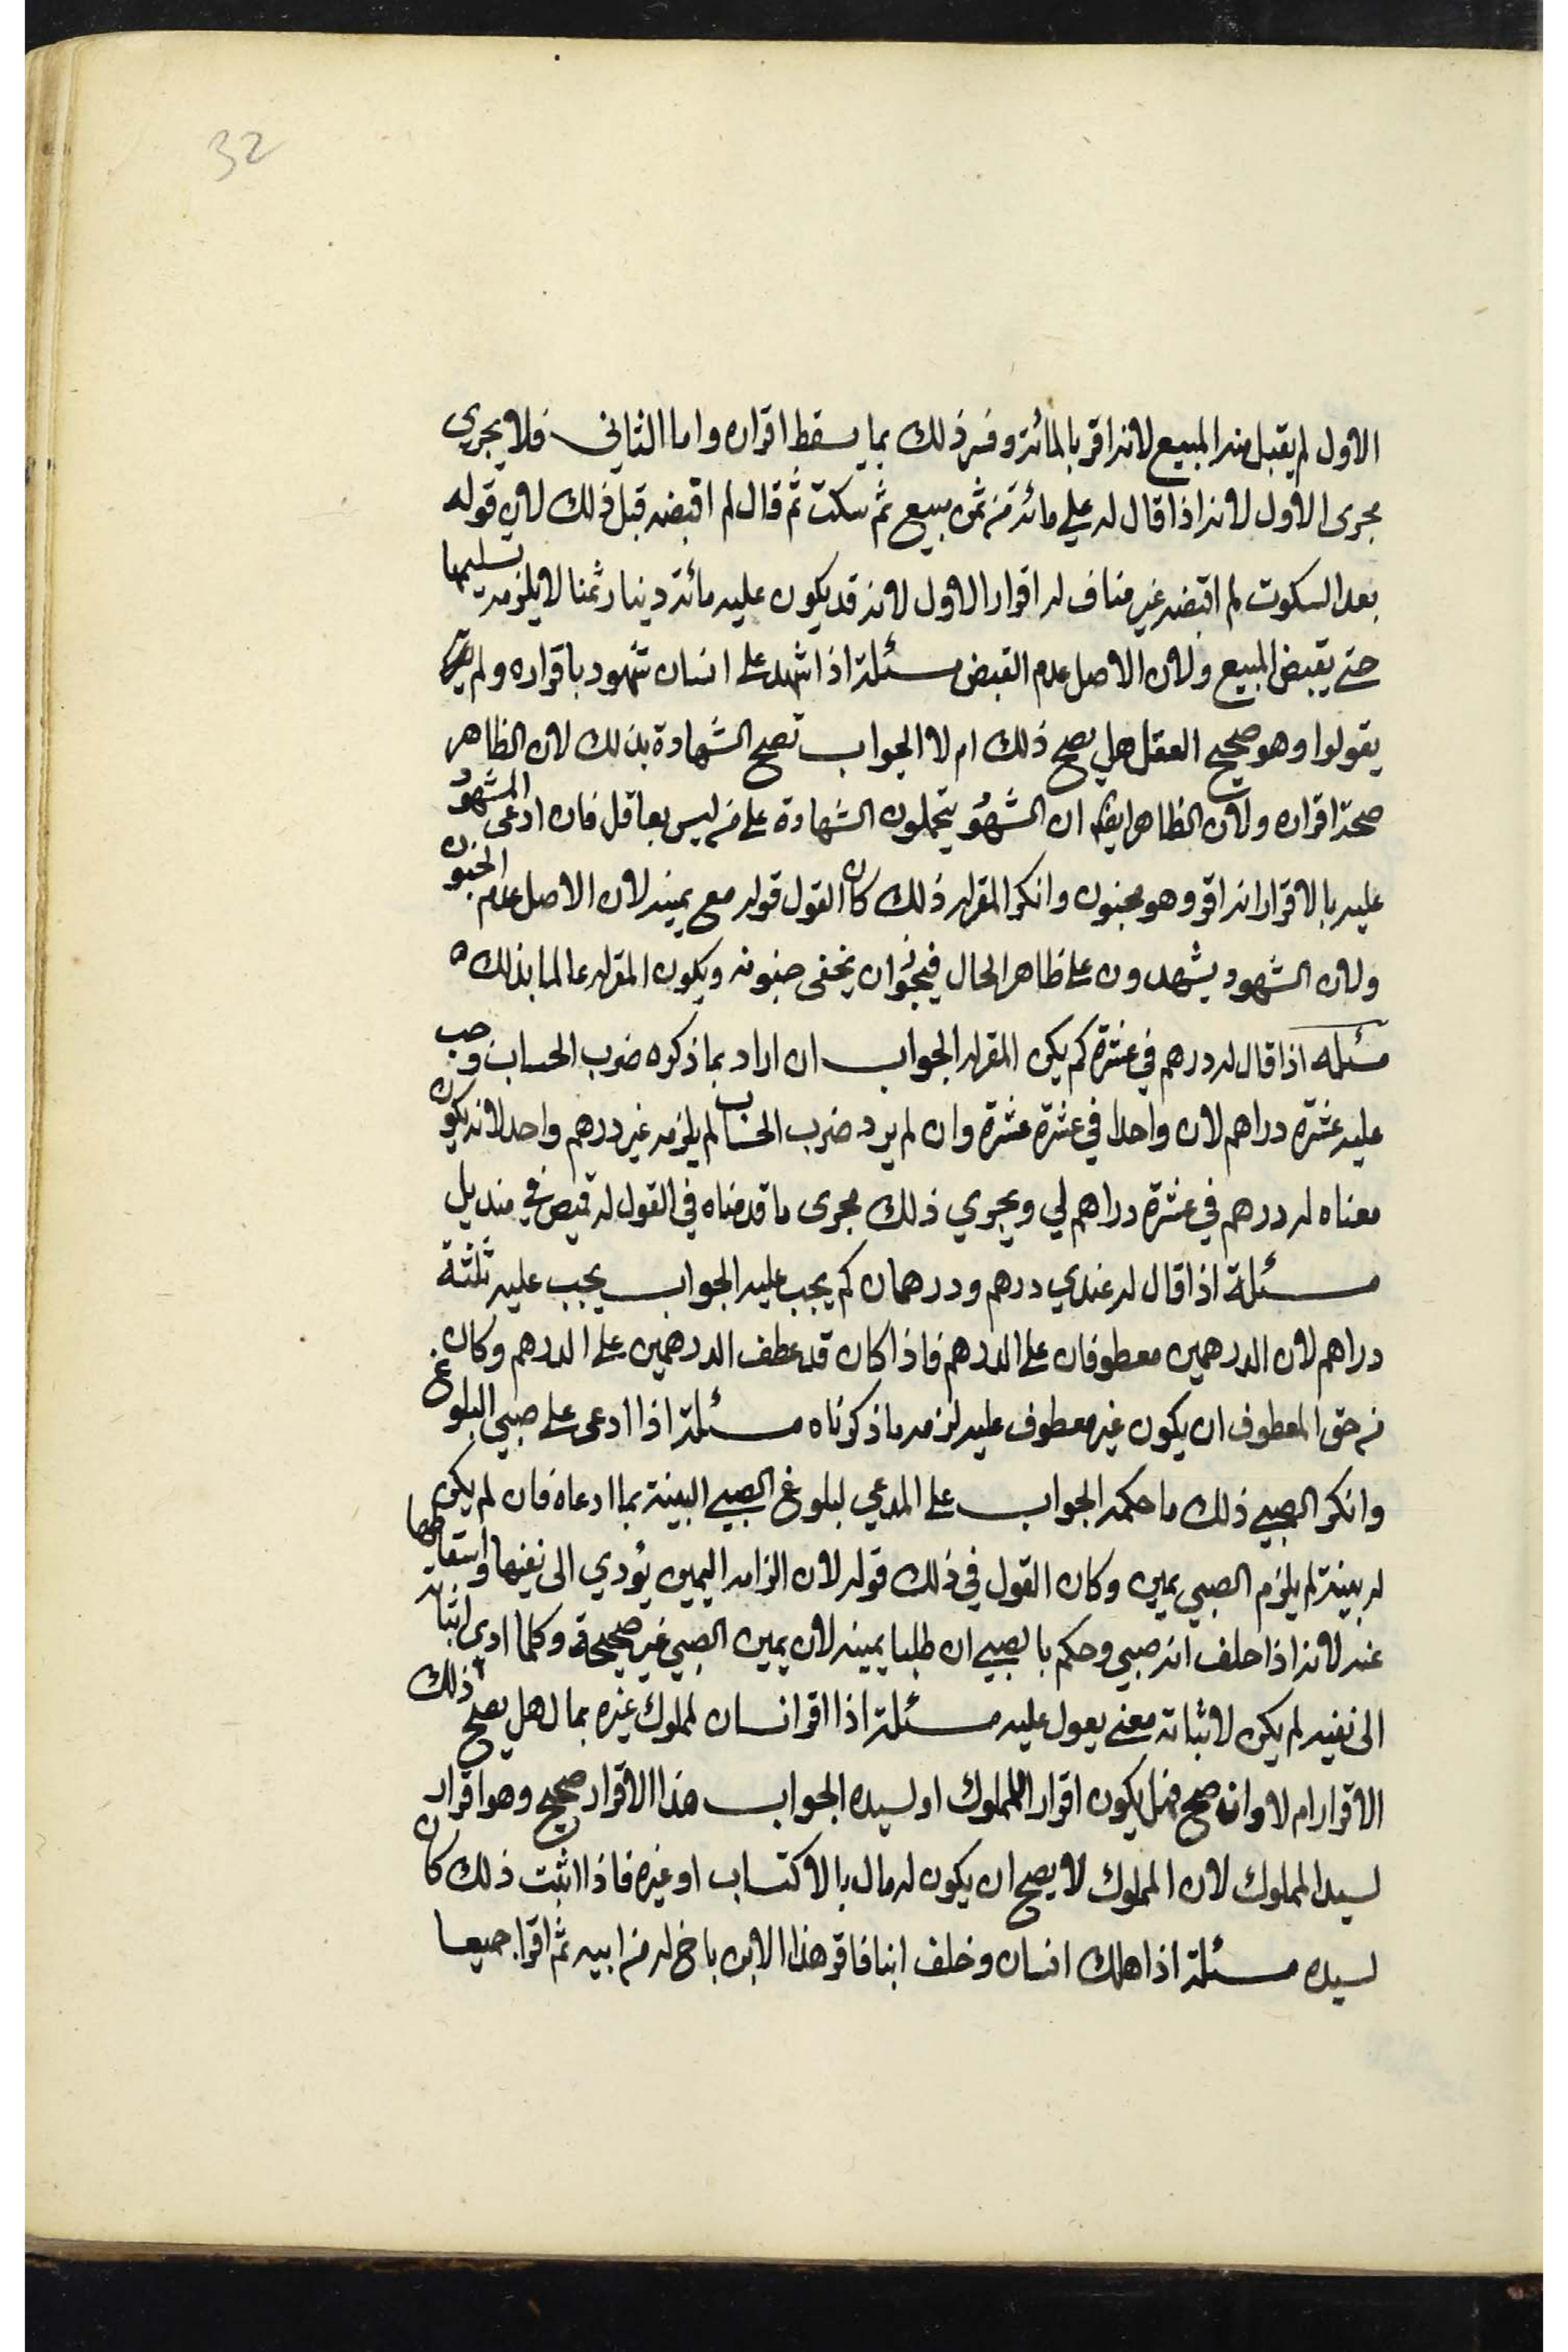 32
الاول لم يقبل منه المبيع لانه اقر بالمائة وفسر ذلك بما يسقط اقراره واما الثاني فلا يجري
مجرى الاول لانه اذا قال له علي مائة من ثمن مبيع ثم سكت ثم قال لم اقبضه قبل ذلك لان قوله
بعد السكوت لم اقبضه غير مناف له اقرار الاول لانه قد يكون عليه مائة دينار ثمنا لا يلزمه تسليمها
حتى يقبض المبيع ولان الاصل عدم القبض مسئلة اذا شهد على انسان شهود باقراره ولم
يقولوا وهو صحيح العقل هل يصح ذلك ام لا الجواب تصح الشهادة بذلك لان الظاهر
صحة اقراره ولان الظاهر ايضا ان الشهو يتحملون الشهادة على من ليس بعاقل فان ادعى المشهو
عليه بالاقرار انه اقر وهو مجنون وانكر المقر له ذلك كان القول قوله مع يمينه لان الاصل عدم الجنون
ولان الشهود يشهدون على ظاهر الحال فيجوز ان يخفى جنونه ويكون المقر له عالما بذلك ه
مسئله اذا قال له درهم في عشرة كم يكن المقر له الجواب ان اراد بما ذكره ضرب الحساب وجب
عليه عشرة دراهم لان واحدا في عشرة عشرة وان لم يرد ضرب الحساب لم يلزمه غير درهم واحد لانه يكون
معناه له درهم في عشرة دراهم لي ويجري ذلك مجرى ما قدمناه في القول له قميص في منديل
مسئلة اذا قال له عندي درهم ودرهمان كم يجب عليه الجواب يجب عليه ثلثة
دراهم لان الدرهمين معطوفان على الدرهم فاذا كان قد عطف الدرهمين على الدرهم وكان
من حق المعطوف ان يكون غير معطوف عليه لزمه ما ذكرناه مسئلة اذا ادعى على صبي البلوغ
وانكر الصبي ذلك ما حكمه الجواب على المدعي لبلوغ الصبي البينة بما ادعاه فان لم يكن
له بينة لم يلزم الصبي يمين وكان القول في ذلك قوله لان الزامه اليمين يؤدي الى نفيها واسقاطها
عنه لانه اذا حلف انه صبي وحكم بالصبي ان طلبا يمينه لان يمين الصبي غير صحيحة وكلما ادى اثباته
الى نفيه لم يكن لاثباته معنى يعول عليه مسئلة اذا اقر انسان لمملوك غيره بمال هل يصح ذلك
الاقرار ام لا وان صح فهل يكون اقرار المملوك او لسيده الجواب هذا الاقرار صحيح وهو اقرار
لسيد المملوك لان المملوك لا يصح ان يكون له مال بالاكتساب او غيره فاذا اثبت ذلك كان
لسيده مسئلة اذا هلك انسان وخلف ابنا فاقر هذا الابن باخ له من ابيه ثم اقرا جميعا